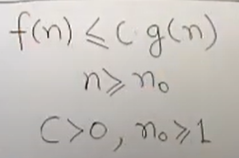 f(n) ≤ C g(n)
n ≥ n₀
C > 0, n₀ ≥ 1